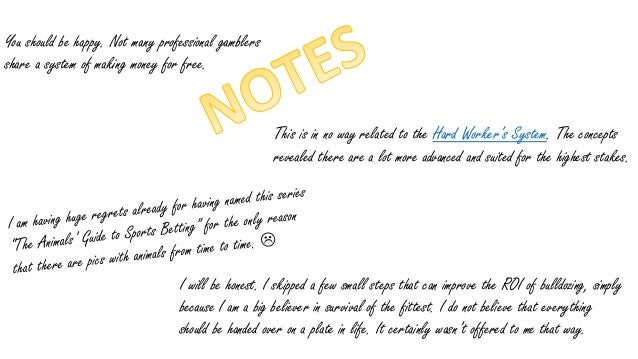 You should be happy. Not many professional gamblers
share a system of making money for free.
NOTES
This is in no way related to the Hard Worker's System. The concepts
revealed there are a lot more advanced and suited for the highest stakes.
I am having huge regrets already for having named this series
"The Animals' Guide to Sports Betting" for the only reason
that there are pics with animals from time to time. ☹
I will be honest. I skipped a few small steps that can improve the ROI of bulldozing, simply
because I am a big believer in survival of the fittest. I do not believe that everything
should be handed over on a plate in life. It certainly wasn't offered to me that way.